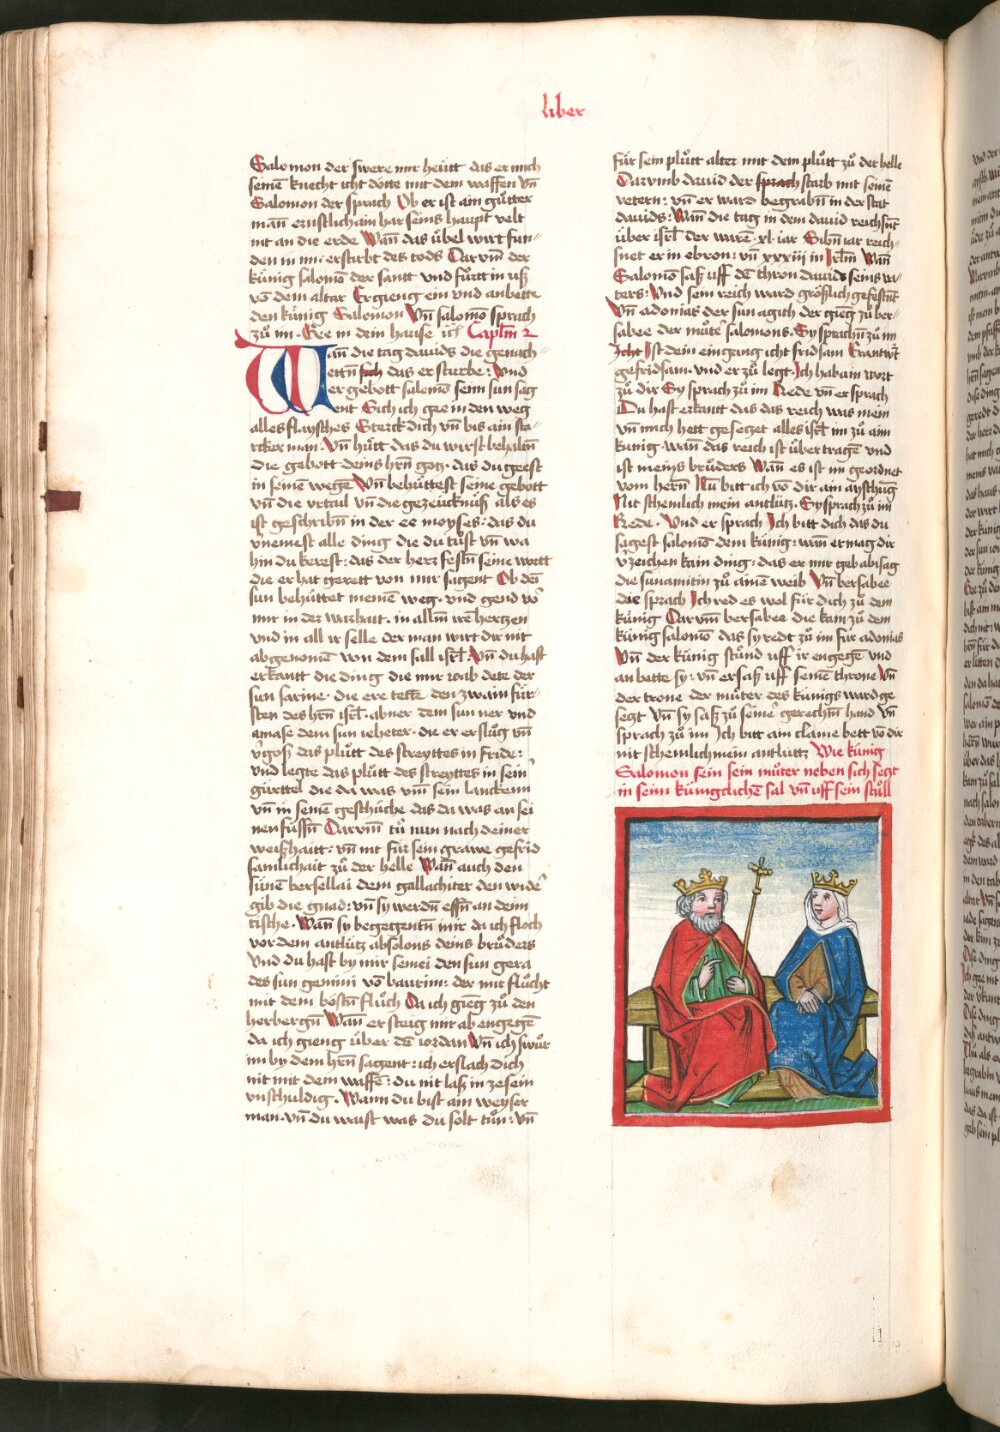 liber
Salomon der swere mir heütt das er mich
seinē knecht icht dötte mit dem waffen vn̄
Salomon der sprach Ob er ist ain gůtter
mān ernstlich ain har seins haupt velt
nit an die erde Wan̄ das übel wirt fun-
den in im: er stirbt des tods Darvm̄ der
künig salomō der santt vnd fürtt in uß
vō dem altar Er gieng ein vnd anbette
den künig Salomon Vn̄ salomō sprach
zů im. Gee in dein hause ic̄ Caplm̄ 2
Wan̄ die tag dauids die genach-
ettn̄ sich das er sturbe: Vnd
er gebott salomō seim sun sag
ent Sich ich gee in den weg
alles flaysches Sterck dich vn̄ bis ain sta-
rcker man. Vn̄ hütt das du wirst behaltn̄
die gebott deins hrn̄ gotz. das du geest
in seinē wege Vn̄ behüttest seine gebott
vn̄ die vrtail vn̄ die gezeücknüß als es
ist geschribn̄ in der ee moyses: das du
vnemest alle ding die du tůst vn̄ wa
hin du kerest: das der herr festn̄ seine wortt
die er hat gerett von mir sagent Ob dein̄
sun behüttet meinē weg. vnd gend vo᷒
mir in der warhait. in allm̄ irē hertzen
vnd in all ir selle der man wirt dir nit
abgenomē von dem sall isrl̄. Vn̄ du hast
erkantt die ding die mir ioab dete der
sun sarine. die ere tett den zwain für-
sten des hrn̄ isrl̄. abner dem sun ner vnd
amase dem sun ieheter. die er erslůg vn̄
vgoß das plůtt des streyttes in fride:
vnd legte das plůtt des streyttes in sein
gürttel die da was vm̄ sein lanckenn
vn̄ in seinē geschüche das da was an sei
nen füssn̄ Darvm̄ tů nun nach deiner
weißhaitt: vn̄ nit für sein grawe gefrid
samlichait zů der helle Wan̄ auch den
sünē bersellai dem gallachiter den wide᷒
gib die gnad: vn̄ sy werdn̄ essn̄ an deim
tische. Wan̄ sy begegentn̄ mir da ich floch
vor dem antlütz absolons deins brůders
Vnd du hast by mir semei den sun gera
des sun gemini vō baurim: der mir flůcht
mit dem bösn̄ flůch Da ich gieng zů den
herbergn̄ Wan̄ er steig mir ab engegē
da ich gieng über dē iordan Vn̄ ich swůr
im by dem hrn̄ sagent: ich erslach dich
nit mit dem waffē: du nit laß in ze sein
vnschuldig. Wann du bist ain weyser
man. vn̄ du waist was du solt tůn: vn̄
für sein plůtt alter mit dem plůtt zů der helle
Darvmb dauid der sprach starb mit seinē
vetern: vn̄ er ward begrabn̄ in der stat
dauids: Wan̄ die tag in dem dauid reichsnt
über isrl̄ der ware. xl. iar Sibn̄ iar reich-
snet er in ebron: vn̄ xxxiii in Jrlm̄ Wan̄
Salomō saß uff dē thron dauids seins va-
ters: Vnd sein reich ward größlich gefestnt
Vn̄ adonias der sun agith der gieg zů ber-
sabee der můte᷒ salomons. Sy sprach zů im
Icht Ist dein eingang icht fridsam Er antwrt
gefridsam. vnd er zů legt. Ich hab ain wort
zů dir Sy sprach zů im Rede vn̄ er sprach
Du hast erkantt das das reich was mein
vn̄ mich hett gesetzet alles isrl̄ im zů aim
künig. wan̄ das reich ist übertragē vnd
ist meins brůders Wan̄ es ist im geordnet
vom hern̄ Nů bitt ich vō dir ain ayschūg
Nit schemlich mein antlütz. Sy sprach zů im
Rede. Vnd er sprach Ich bitt dich das du
sagest salomō dem künig: wan̄ er mag dir
v᷒zeichen kain ding. das er mir geb abisag
die sunamitin zů ainē weib Vn̄ bersabee
die sprach Ich red es wol für dich zů dem
künig Darvm̄ bersabee die kam zů dem
künig salomō das sy redt zů im für adonias
Vn̄ der künig stůnd uff ir engegē vnd
an bette sy: vn̄ er saß uff seinē throne Vn̄
der trone der můter des künigs ward ge
setzt Vn̄ sy saß zů seine᷒ gerechtn̄ hand Vn̄
sprach zů im Ich bitt ain claine bett vō dir
nit schemlich mein antlütz Wie künig
Salomon sein sein můter neben sich setzt
in seim künigclichē sal vn̄ uff sein stůll